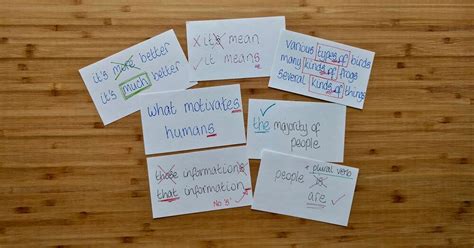 it's more better
it's much better
it's mean
it means
various types of birds
many kinds of frogs
several kinds of things
what motivates
humans
the majority of
people
those informations
that information
No 's'
+ plural verb
people is
are